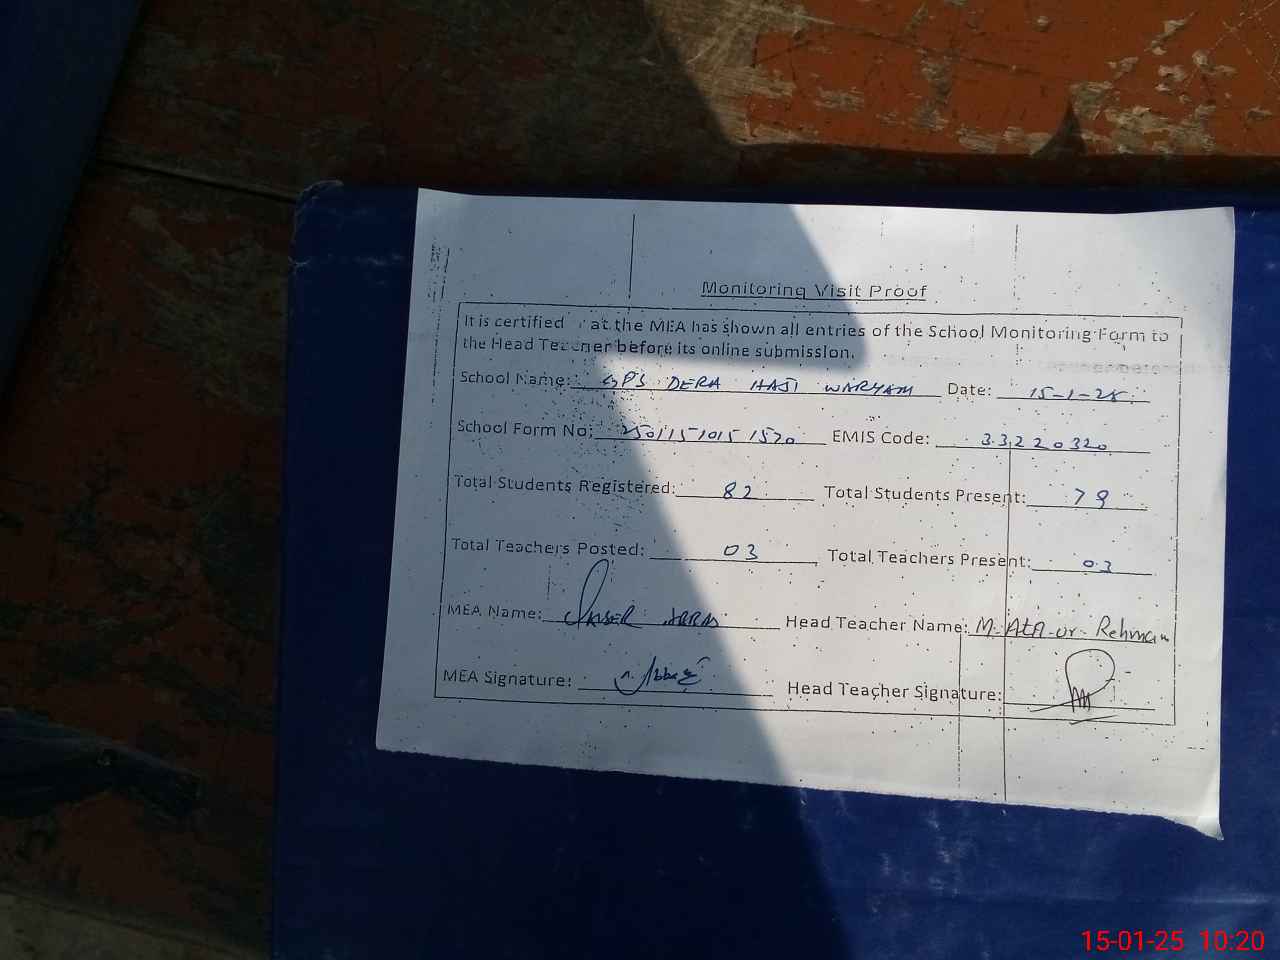 Monitoring Visit Proof
It is certified at the MEA has shown all entries of the School Monitoring Form to
the Head Teacher before its online submission.
School Name: GPS DERA HAJI WARYAM Date: 15-1-25
School Form No: 2501151015 1520 EMIS Code: 33220320
Total Students Registered: 82 Total Students Present: 79
Total Teachers Posted: 03 Total Teachers Present: 03
MEA Name: Head Teacher Name: M. AtA-ur-Rehman
MEA Signature: Head Teacher Signature:
15-01-25 10:20